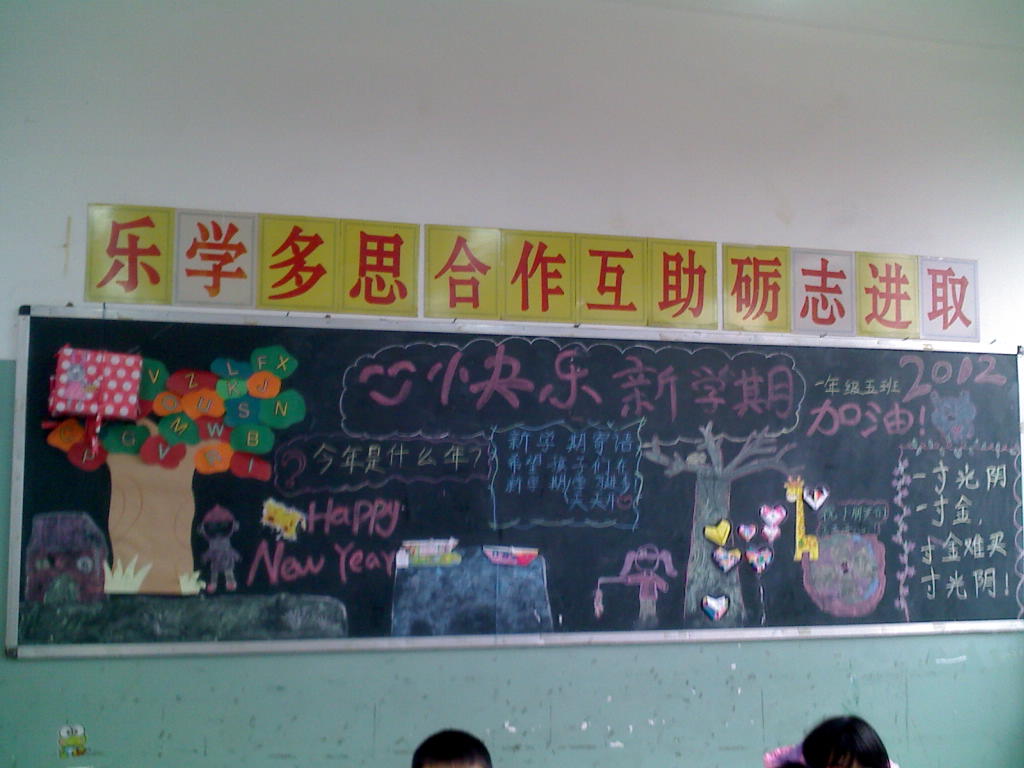 乐学多思合作互助砺志进取
快乐新学期
一年级五班
2012
加油!
V Z L F X
K J
O U S N
G M W B
P V I
今年是什么年?
新学期寄语
希望孩子们在
新学期里
天天
Happy
New Year
一寸光阴
一寸金,
寸金难买
寸光阴!